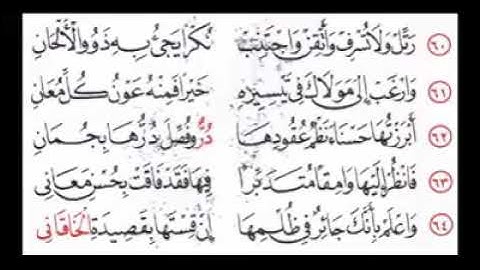 ٦٠ رَتِّلْ وَلَا تُسْرِفْ وَأَتْقِنْ وَاجْتَنِبْ نُكْرًا يَجِيءُ بِهِ ذَوُو الْأَلْحَانِ
٦١ وَارْغَبْ إِلَى مَوْلَاكَ فِي تَيْسِيرِهِ خَيْرًا فَمِنْهُ عَوْنُ كُلِّ مُعَانِ
٦٢ أَبْرَزْتُهَا حَسْنَاءَ نَظْمُ عُقُودِهَا دُرٌّ وَفُصِّلَ دُرُّهَا بِجُمَانِ
٦٣ فَانْظُرْ إِلَيْهَا وَامِقًا مُتَدَبِّرًا فِيهَا فَقَدْ فَاقَتْ بِحُسْنِ مَعَانِي
٦٤ وَاعْلَمْ بِأَنَّكَ جَائِرٌ فِي ظُلْمِهَا إِنْ قِسْتَهَا بِقَصِيدَةِ الْخَاقَانِي